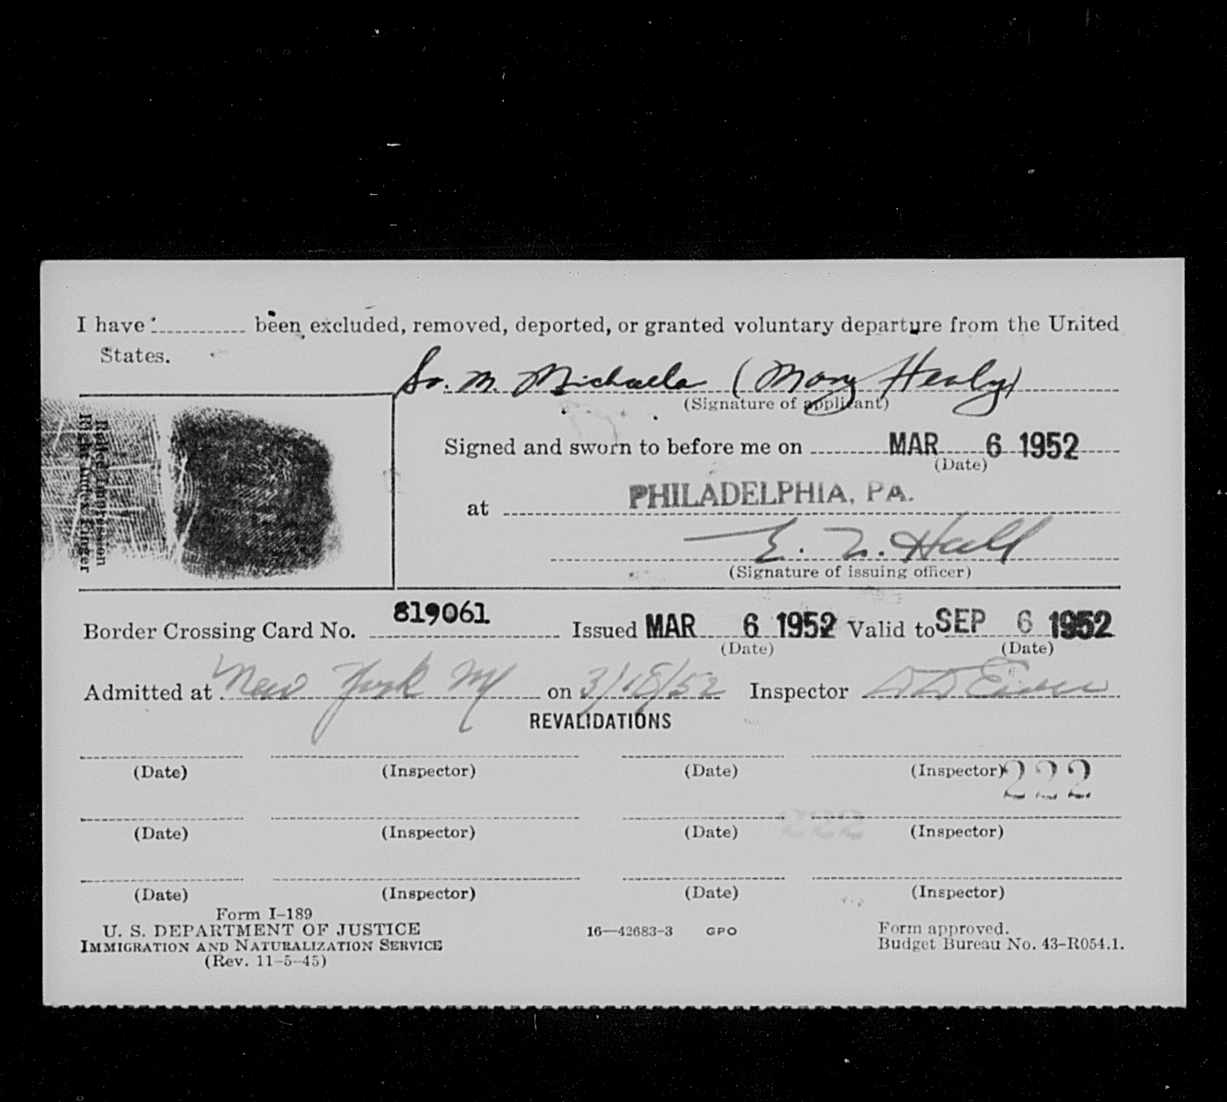 I have ........... been excluded, removed, deported, or granted voluntary departure from the United
States.
Sr. M. Michaela (Mary Healy)
(Signature of applicant)
Rolled Impression
Right Index Finger
Signed and sworn to before me on MAR 6 1952
(Date)
at PHILADELPHIA, PA.
E. Hall
(Signature of issuing officer)
Border Crossing Card No. 819061 Issued MAR 6 1952 Valid to SEP 6 1952
(Date) (Date)
Admitted at New York NY on 3/18/52 Inspector
REVALIDATIONS
(Date) (Inspector) (Date) (Inspector) 222
(Date) (Inspector) (Date) 222 (Inspector)
(Date) (Inspector) (Date) (Inspector)
Form I-189
U. S. DEPARTMENT OF JUSTICE 16—42683-3 GPO Form approved.
IMMIGRATION AND NATURALIZATION SERVICE Budget Bureau No. 43-R054.1.
(Rev. 11-5-45)